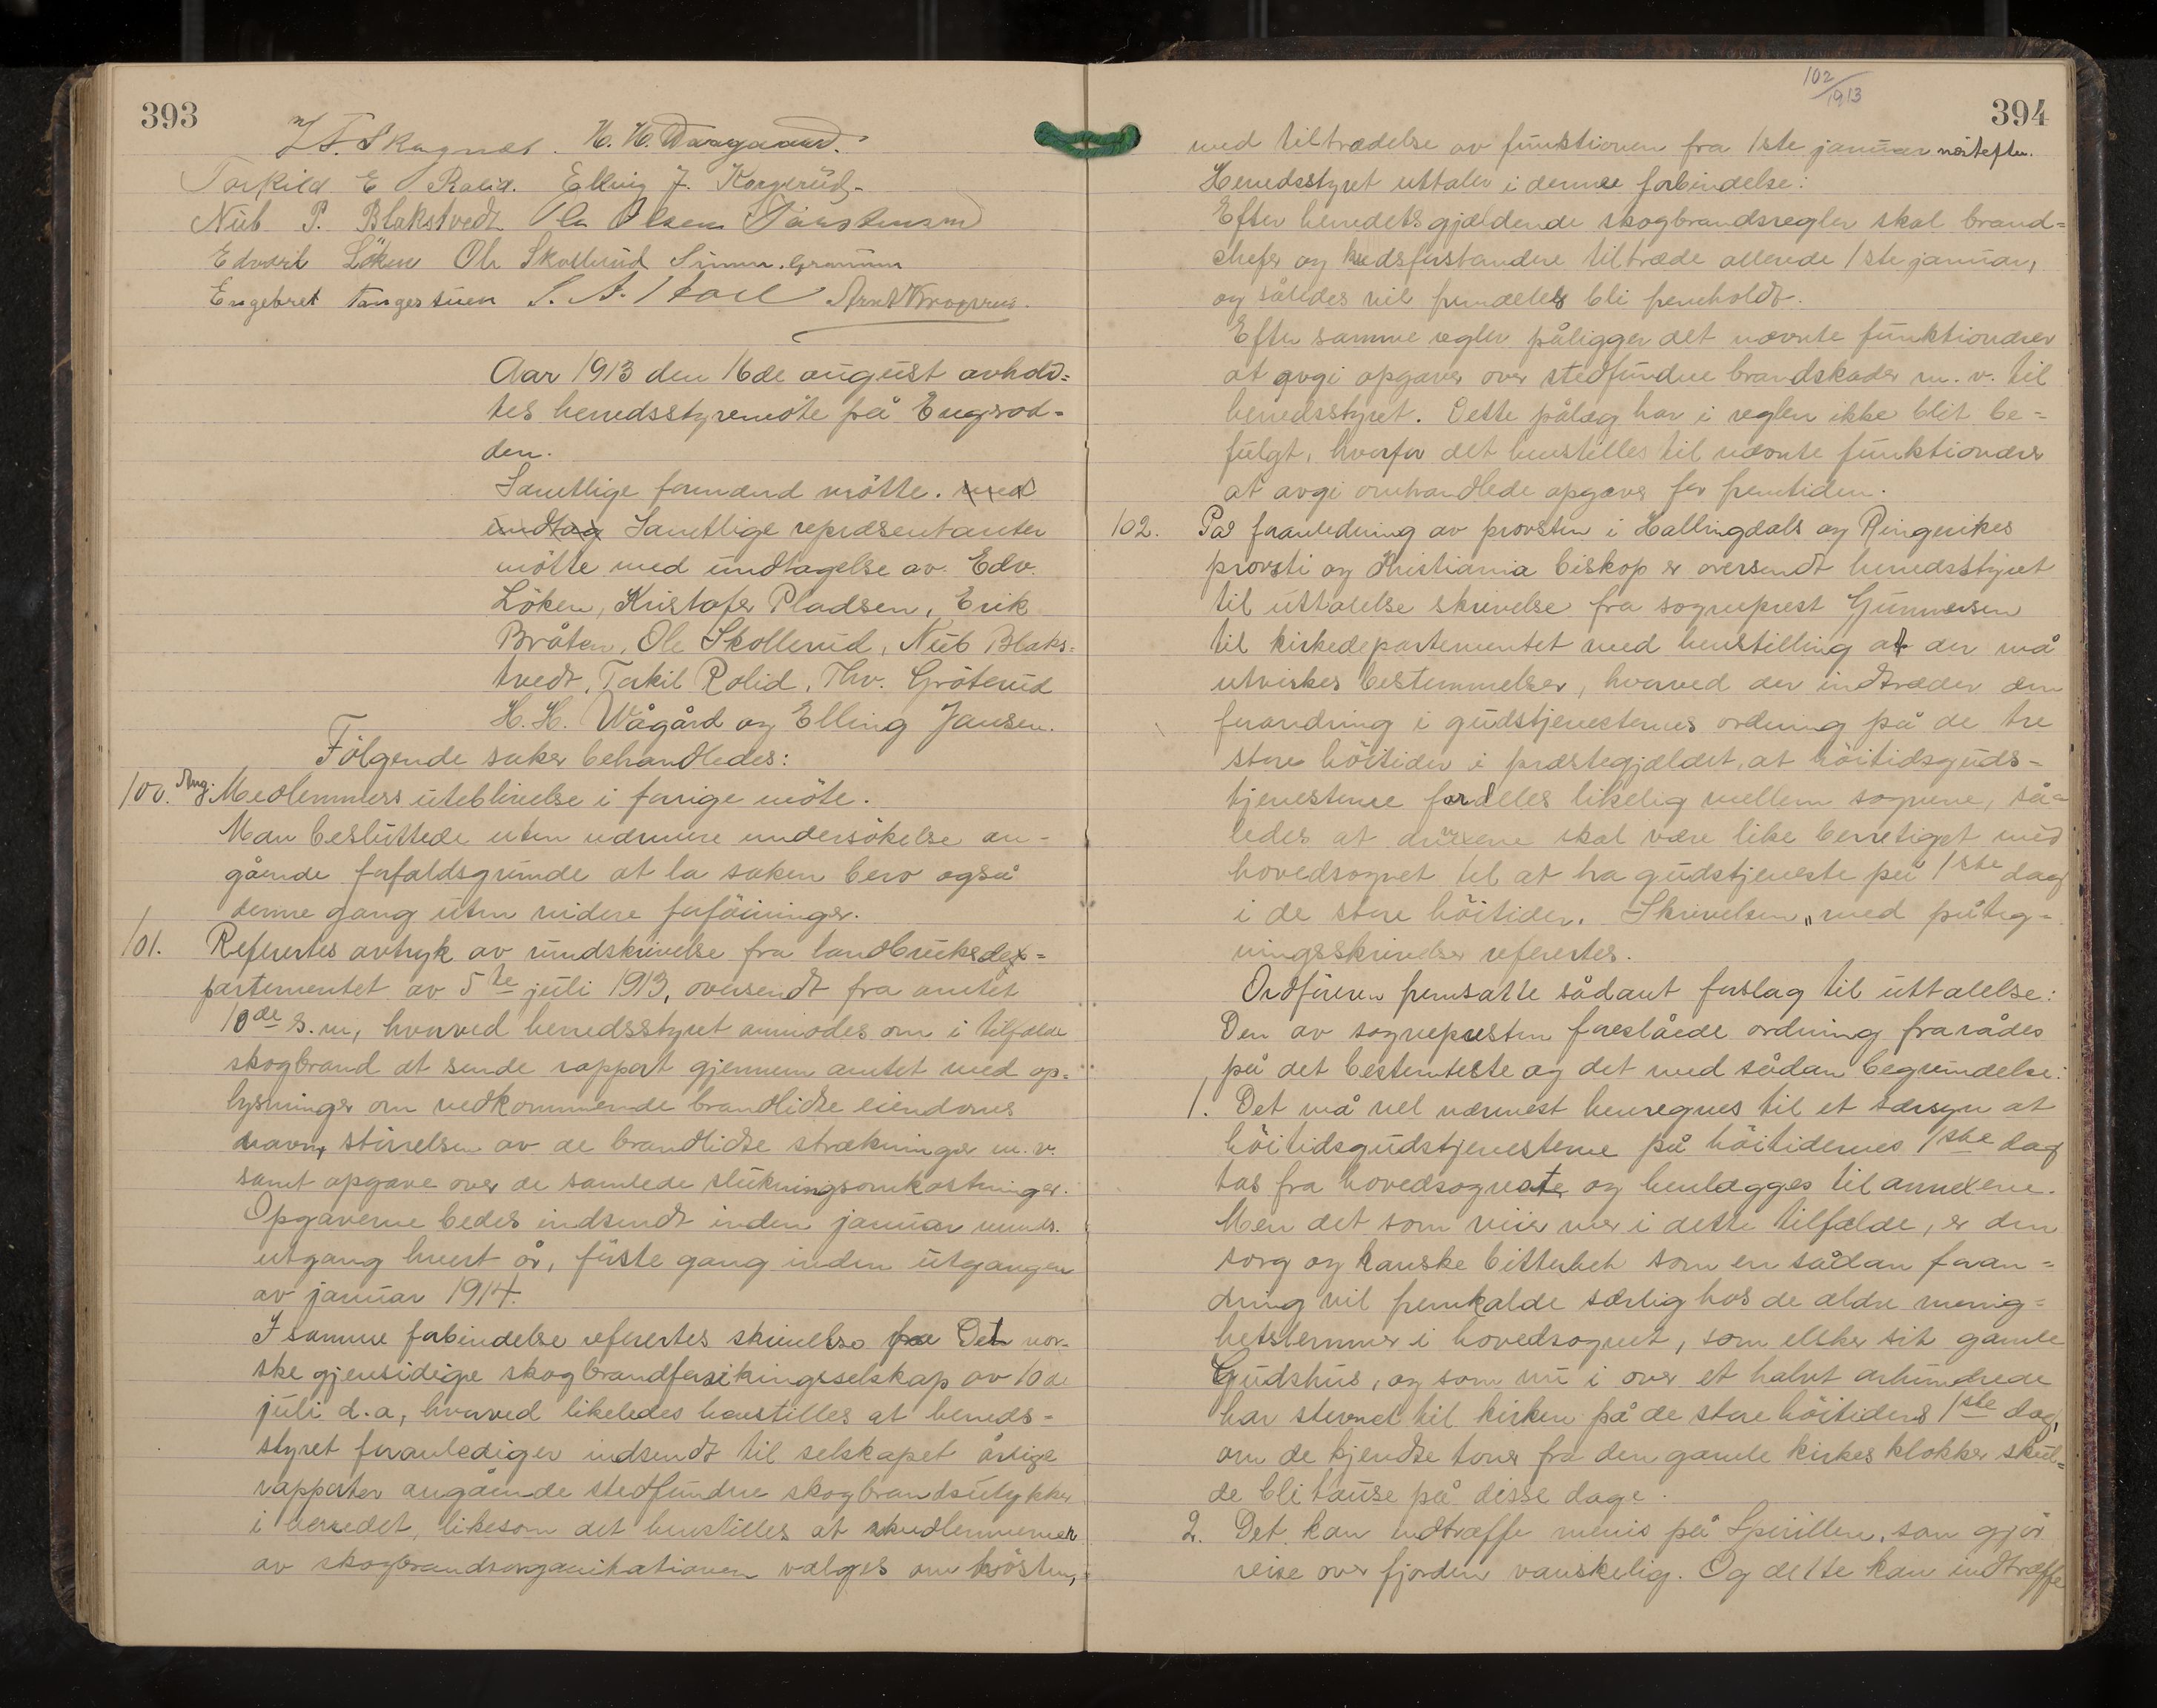 393
T. Skagnæs. H. H. Waagaard.
Torkild E Rolid. Elling J. Korgerud.
Nub P. Blakstvedt Ole Olsen
Edvart Löken Ole Skollerud Simen. Gramum
Engebret Tangestuen
Aar 1913 den 16de august avhold=
tes herredsstyremöte på Engrod=
den.
Samtlige formænd mötte. med
undtag Samtlige repræsentanter
mötte med undtagelse av Edv.
Löken, Kristofer Pladsen, Erik
Bråten, Ole Skollerud, Nub Blaks=
tvedt, Torkil Rolid, Thv. Gröterud
H. H. Wågård og Elling Jansen.
Fölgende saker behandledes:
100. Ang. Medlemmers uteblivelse i forrige möte.
Man besluttede uten nærmere undersökelse an-
gående forfaldsgrunde at la saken bero også
denne gang uten videre forföininger.
101. Refertes avtryk av rundskrivelse fra landbruksde=
partementet av 5te juli 1913, oversendt fra amtet
10de s.m, hvorved herredsstyret anmodes om i tilfælde
skogbrand at sende rapport gjennem amtet med op=
lysninger om vedkommende brandlidte eiendoms
navn, störrelsen av de brandlidte strækninger m.v.
samt opgave over de samlede slukningsomkostninger.
Opgaverne bedes indsendt inden januar munds.
utgang hvert år, förste gang inden utgangen
av januar 1914.
I samme forbindelse refertes skrivelse fra Det nor-
ske gjensidige skogbrandforsikringsselskap av 10de
juli d.a, hvorved likeledes henstilles at herreds-
styret foranlediger indsendt til selskapet årlige
rapporter angående stedfundne skogbrandsulykker
i herredet, likesom det henstilles at medlemmerner
av skogbrandsorganisationen vælges om hösten,
102/1913
394
med tiltrædelse av funktionen fra 1ste januar næstefter.
Herredsstyret uttaler i denne forbindelse:
Efter herredets gjældende skogbrandsregler skal brand=
chefer og kredsforstandere tiltræde allerede 1ste januar,
og således vil fremdeles bli fremholdt.
Efter samme regler påligger det nævnte funktionærer
at avgi opgaver over stedfundne brandskader m.v. til
herredsstyret. Dette pålæg har i reglen ikke blit be=
fulgt, hvorfor det henstilles til nævnte funktionærer
at avgi omhandlede opgaver for fremtiden.
102. På foranledning av provsten i Hallingdals og Ringerikes
provsti og Kristiania biskop er oversendt herredsstyret
til uttalelse skrivelse fra sogneprest Gunnersen
til kirkedepartementet med henstilling at der må
utvirkes bestemmelser, hvorved der indtræder en
forandring i gudstjenesternes ordning på de tre
store höitider i præstegjældet, at höitidsguds=
tjenesterne fordeles likelig mellem sognene, så=
ledes at annexene skal være like berettiget med
hovedsognet til at ha gudstjeneste på 1ste dag
i de store höitider. Skrivelsen med påteg=
ningsskrivelser refertes.
Ordföreren fremsatte sådant forslag til uttalelse:
Den av sognepresten foreslåede ordning frarådes
på det bestemteste og det med sådan begrundelse:
1. Det må vel nærmest henregnes til et særsyn at
höitidsgudstjenesterne på höitidernes 1ste dag
tas fra hovedsognet og henlægges til annexene.
Men det som veier mer i dette tilfælde, er den
sorg og kanske bitterhet som en sådan foran=
dring vil fremkalde særlig hos de ældre menig=
hetslemmer i hovedsognet, som elsker sit gamle
Gudshus, og som nu i over et halvt århundrede
har stevnet til kirken på de store höitiders 1ste dag,
om de kjendte toner fra den gamle kirkes klokker skul=
de bli tause på disse dage.
2. Det kan indtræffe menis på Spirillen, som gjör
reise over fjorden vanskelig. Og dette kan indtræffe